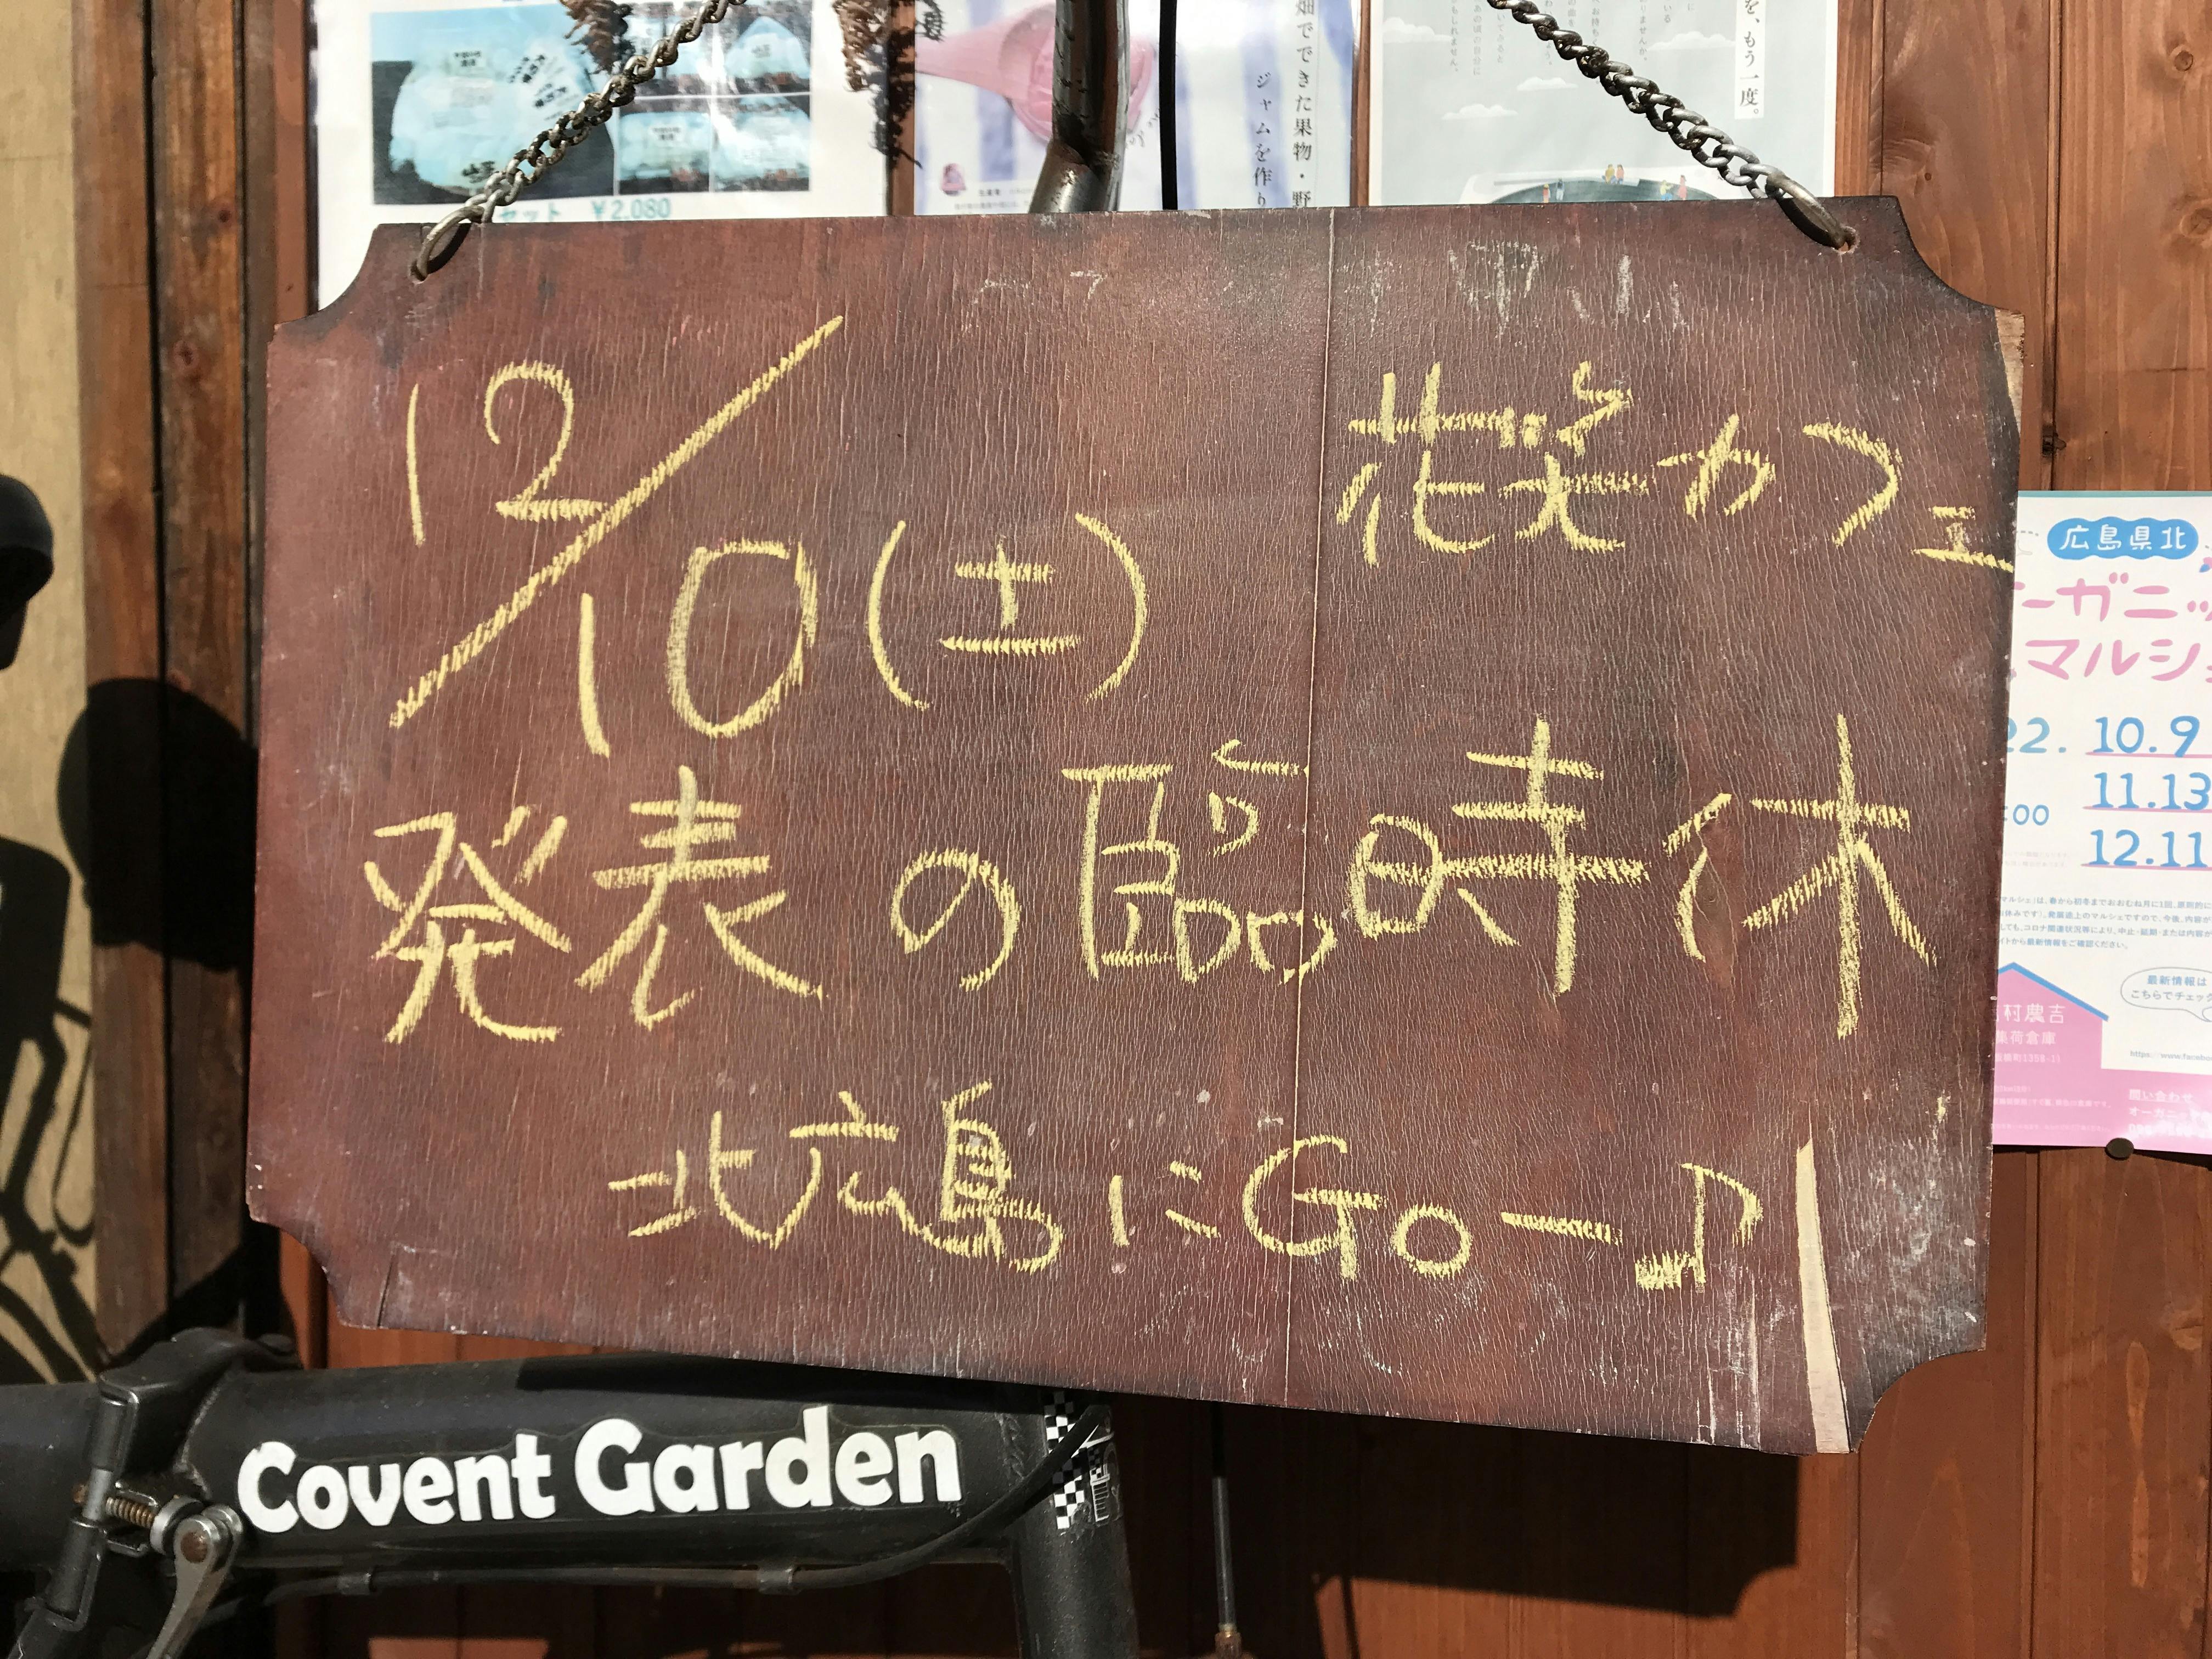 を、もう一度。
畑でできた果物・野
ジャムを作り
セット ￥2,080
花芒カフェ
12/10(土)
発表の臨時休
北広島にGoー♪
広島県北
ーガニッ
マルシェ
22. 10.9
11.13
:00
12.11
最新情報は
こちらでチェック
村農吉
集荷倉庫
問い合わせ
Covent Garden